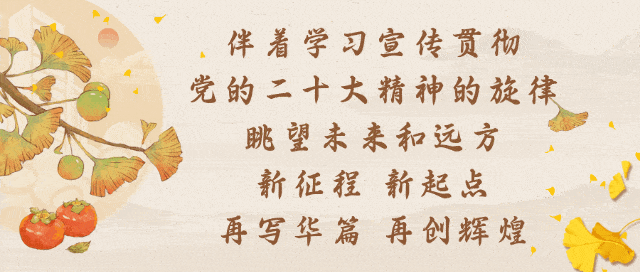 伴着学习宣传贯彻
党的二十大精神的旋律
眺望未来和远方
新征程 新起点
再写华篇 再创辉煌